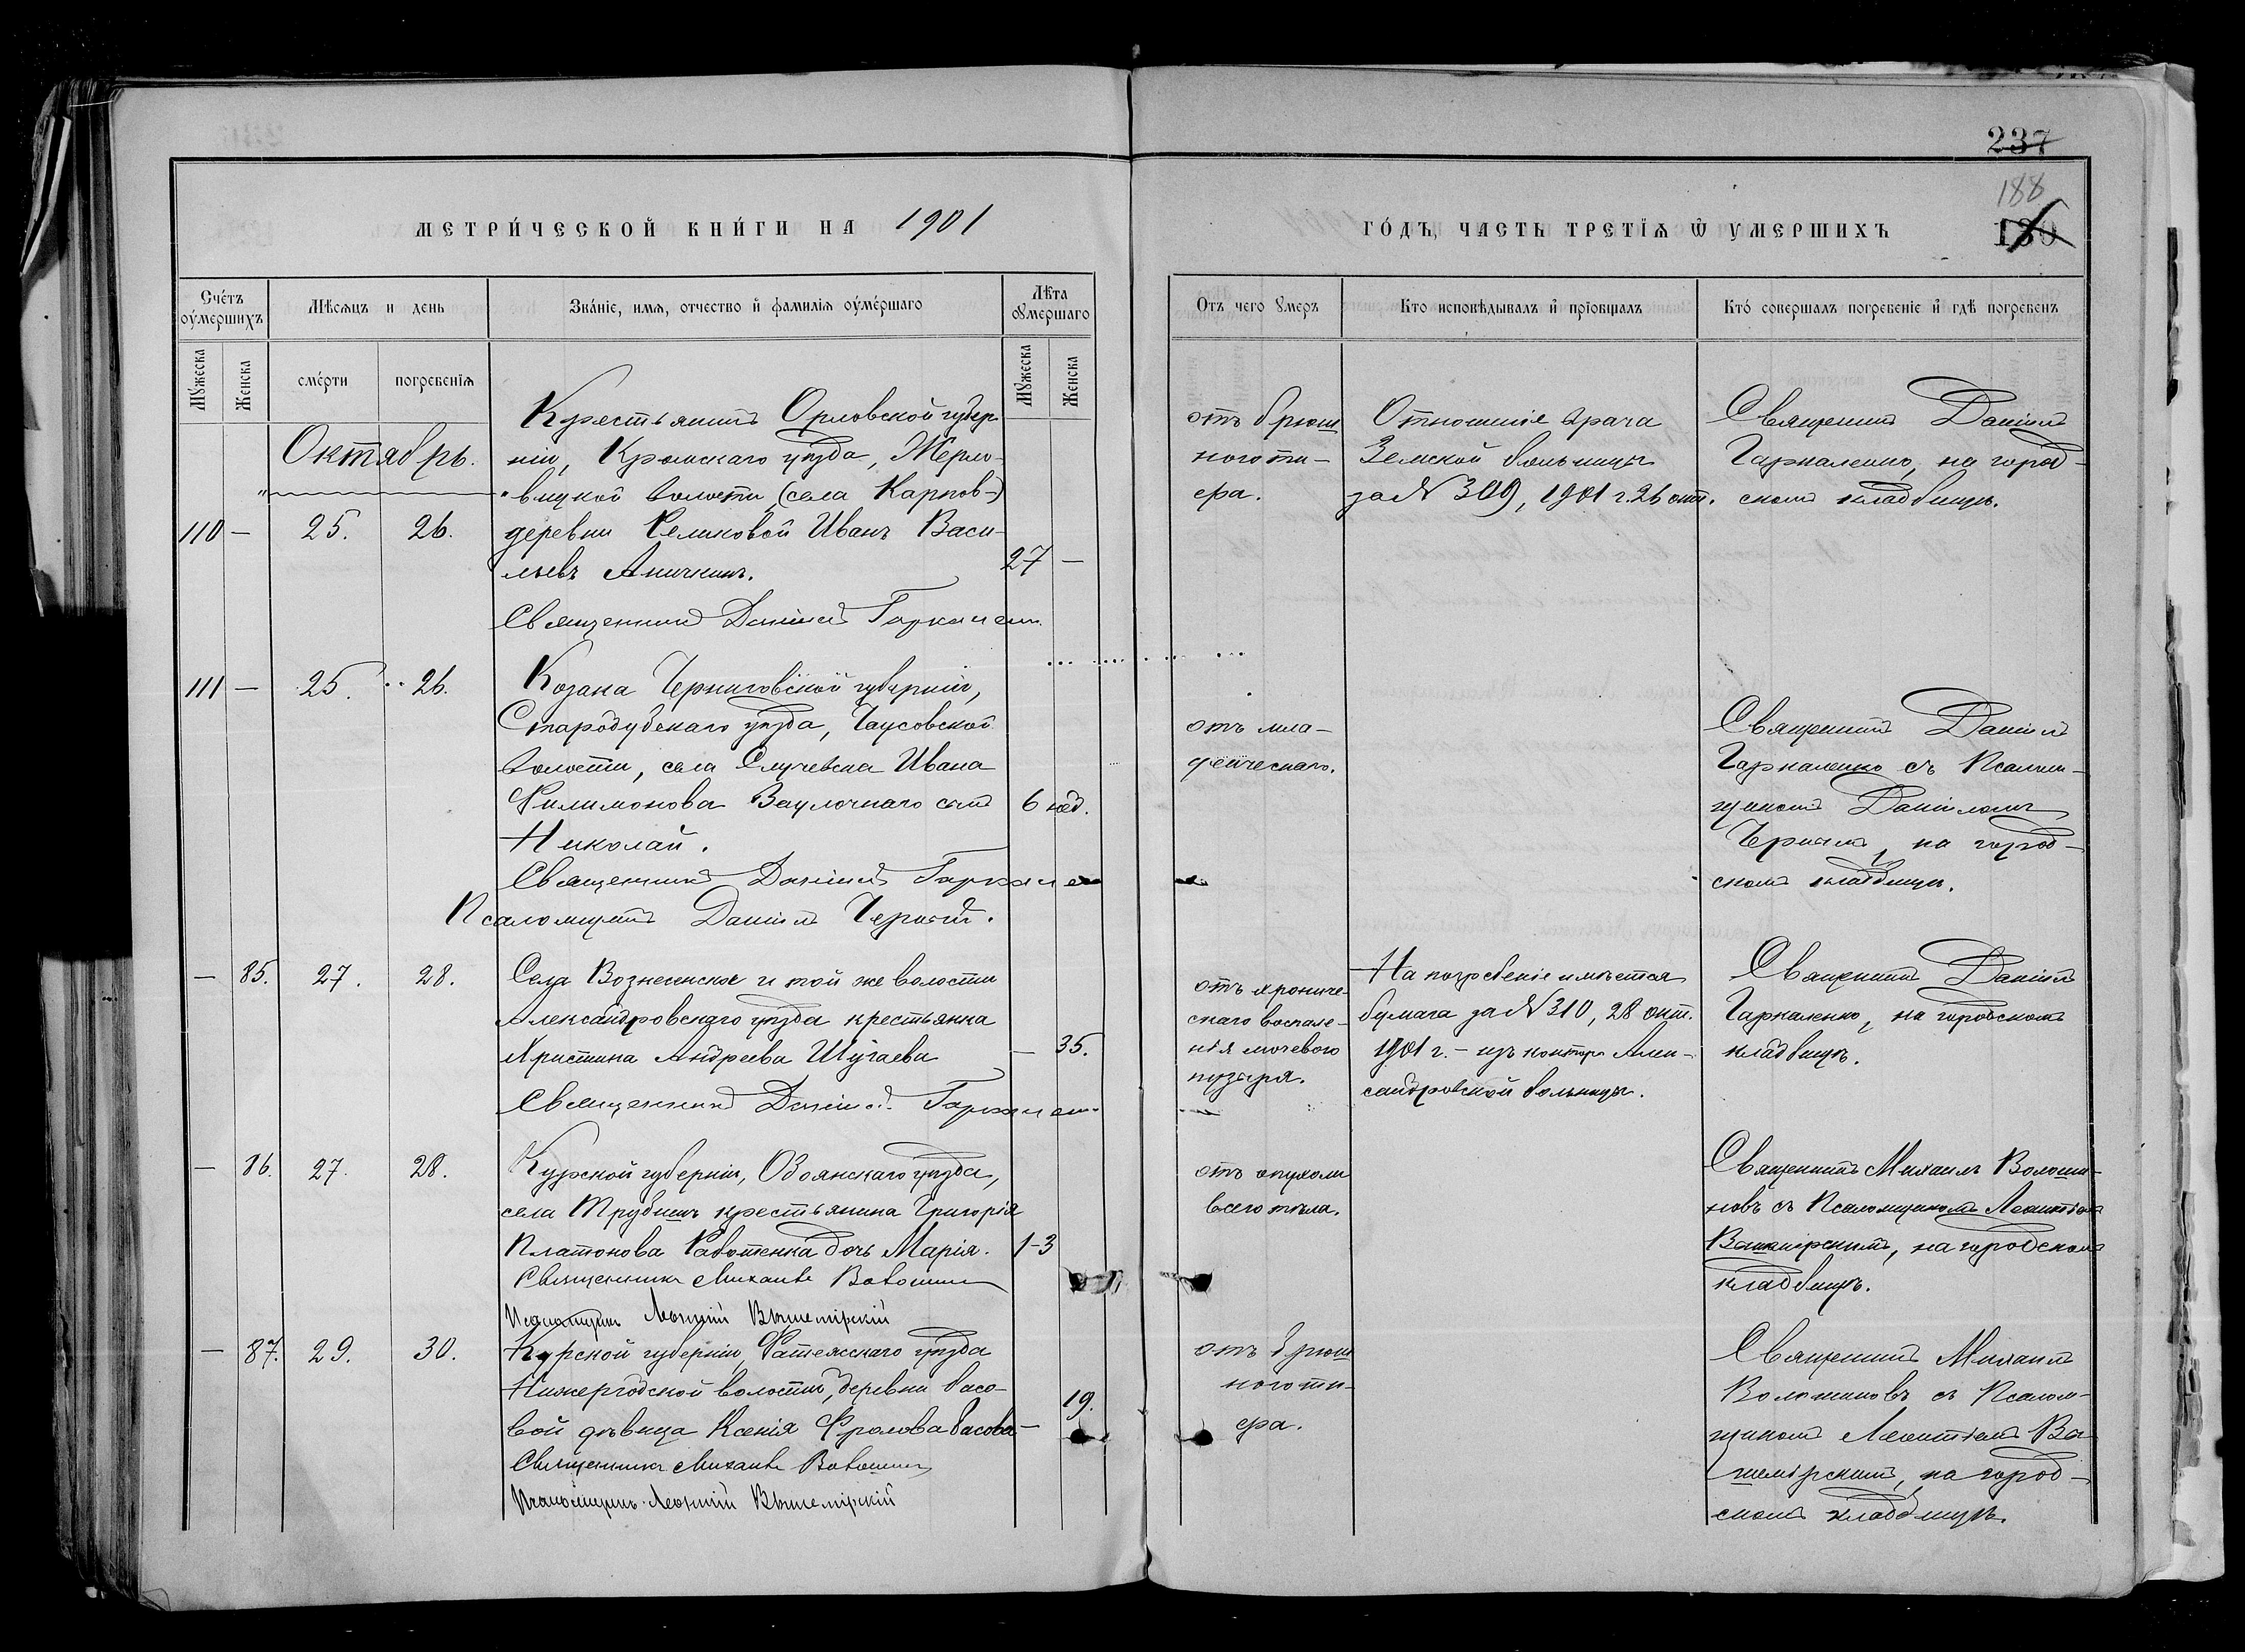 237
188
189
МЕТРИ́ЧЕСКОЙ КНИ́ГИ НА 1901
ГО́ДЪ, ЧАСТЬ ТРЕТІѦ Ѽ УМЕРШИХЪ
Сче́тъ оу҆ме́ршихъ
Мѣсяцъ и день
Зва́ніе, имя, отчество и҆ фамилія оу҆ме́ршаго
Лѣта оу҆мершаго
Мꙋжеска
Женска
сме́рти
погребенїя
Мꙋжеска
Женска
Отъ чего ꙋмеръ
Кто исповѣдывалъ и҆ прїобщалъ
Кто́ совершалъ погребенїе и҆ гдѣ погребенъ
Октябрь.
110 — 25. 26.
Крестьянинъ Орловской губер
ніи, Кромскаго уѣзда, Жерно-
вецкой волости (села Карпов-)
деревни Иванъ Васи-
льевъ Аничкинъ.
27 —
Священникъ Даніилъ Гаркаленко
отъ брюш
ного ти-
фа.
Отношеніе врача
Земской больницы
за № 309, 1901 г. 26 окт.
Священникъ Даніилъ
Гаркаленко, на город-
скомъ кладбищѣ.
111 — 25. 26.
Козака Черниговской губерніи,
Стародубскаго уѣзда, Чаусовской
волости, села Случевска Ивана
Филимонова сынъ
Николай.
6 нед.
Священникъ Даніилъ Гаркаленко
Псаломщикъ Даніилъ Черный.
отъ мла-
денческаго.
Священникъ Даніилъ
Гаркаленко съ Псалом-
щикомъ Даніиломъ
Чернымъ, на город-
скомъ кладбищѣ.
— 85. 27. 28.
Села Вознесенское и той же волости
Александровскаго уѣзда крестьянка
Христина Андреева Шугаева
— 35.
Священникъ Даніилъ Гаркаленко
отъ хрониче-
скаго воспале-
нія мочевого
пузыря.
На погребеніе имѣется
бумага за № 310, 28 окт.
1901 г. – изъ конторы Алек-
сандровской больницы.
Священникъ Даніилъ
Гаркаленко, на городскомъ
кладбищѣ.
— 86. 27. 28.
Курской губерніи, Обоянскаго уѣзда,
села Трубежъ крестьянина Григорія
Платонова Работенка дочь Марія.
1-3
Священникъ Михаилъ Волошиновъ
Псаломщикъ Леонтій Вышемірскій
отъ опухоли
всего тѣла.
Священникъ Михаилъ Волоши-
новъ съ Псаломщикомъ Леонтіемъ
Вышемірскимъ, на городскомъ
кладбищѣ.
— 87. 29. 30.
Курской губерніи, Фатежскаго уѣзда
волости, деревни Басо-
вой дѣвица Ксенія Фролова Басова —
19.
Священникъ Михаилъ Волошиновъ
Псаломщикъ Леонтій Вышемірскій
отъ брюш
ного ти-
фа.
Священникъ Михаилъ
Волошиновъ съ Псалом-
щикомъ Леонтіемъ Вы-
шемірскимъ, на город-
скомъ кладбищѣ.